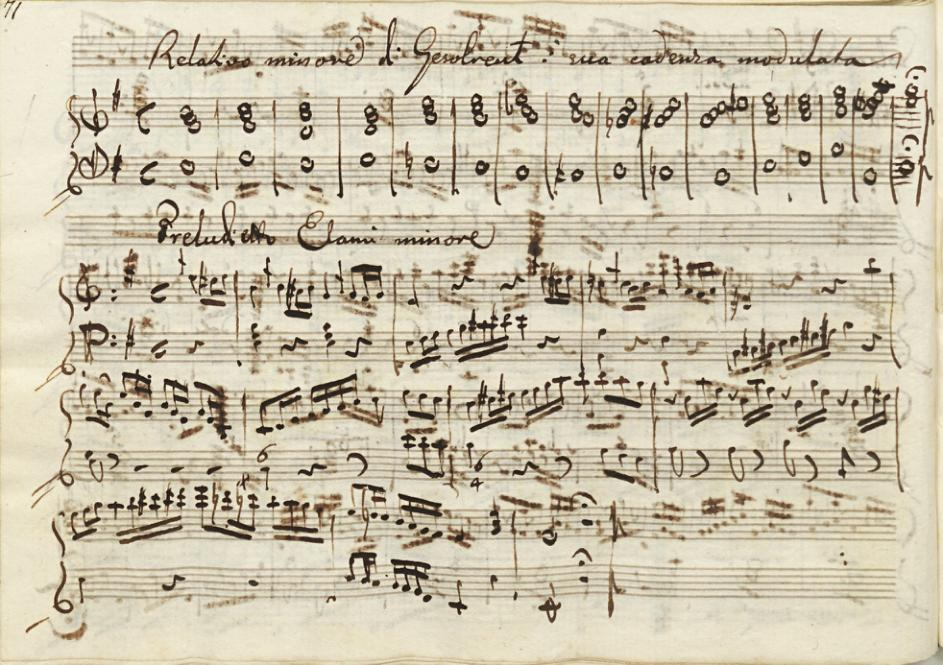 71
Relativo minore di Gesolreut: sua cadenza modulata
Preludietto Elami minore
6
6
4